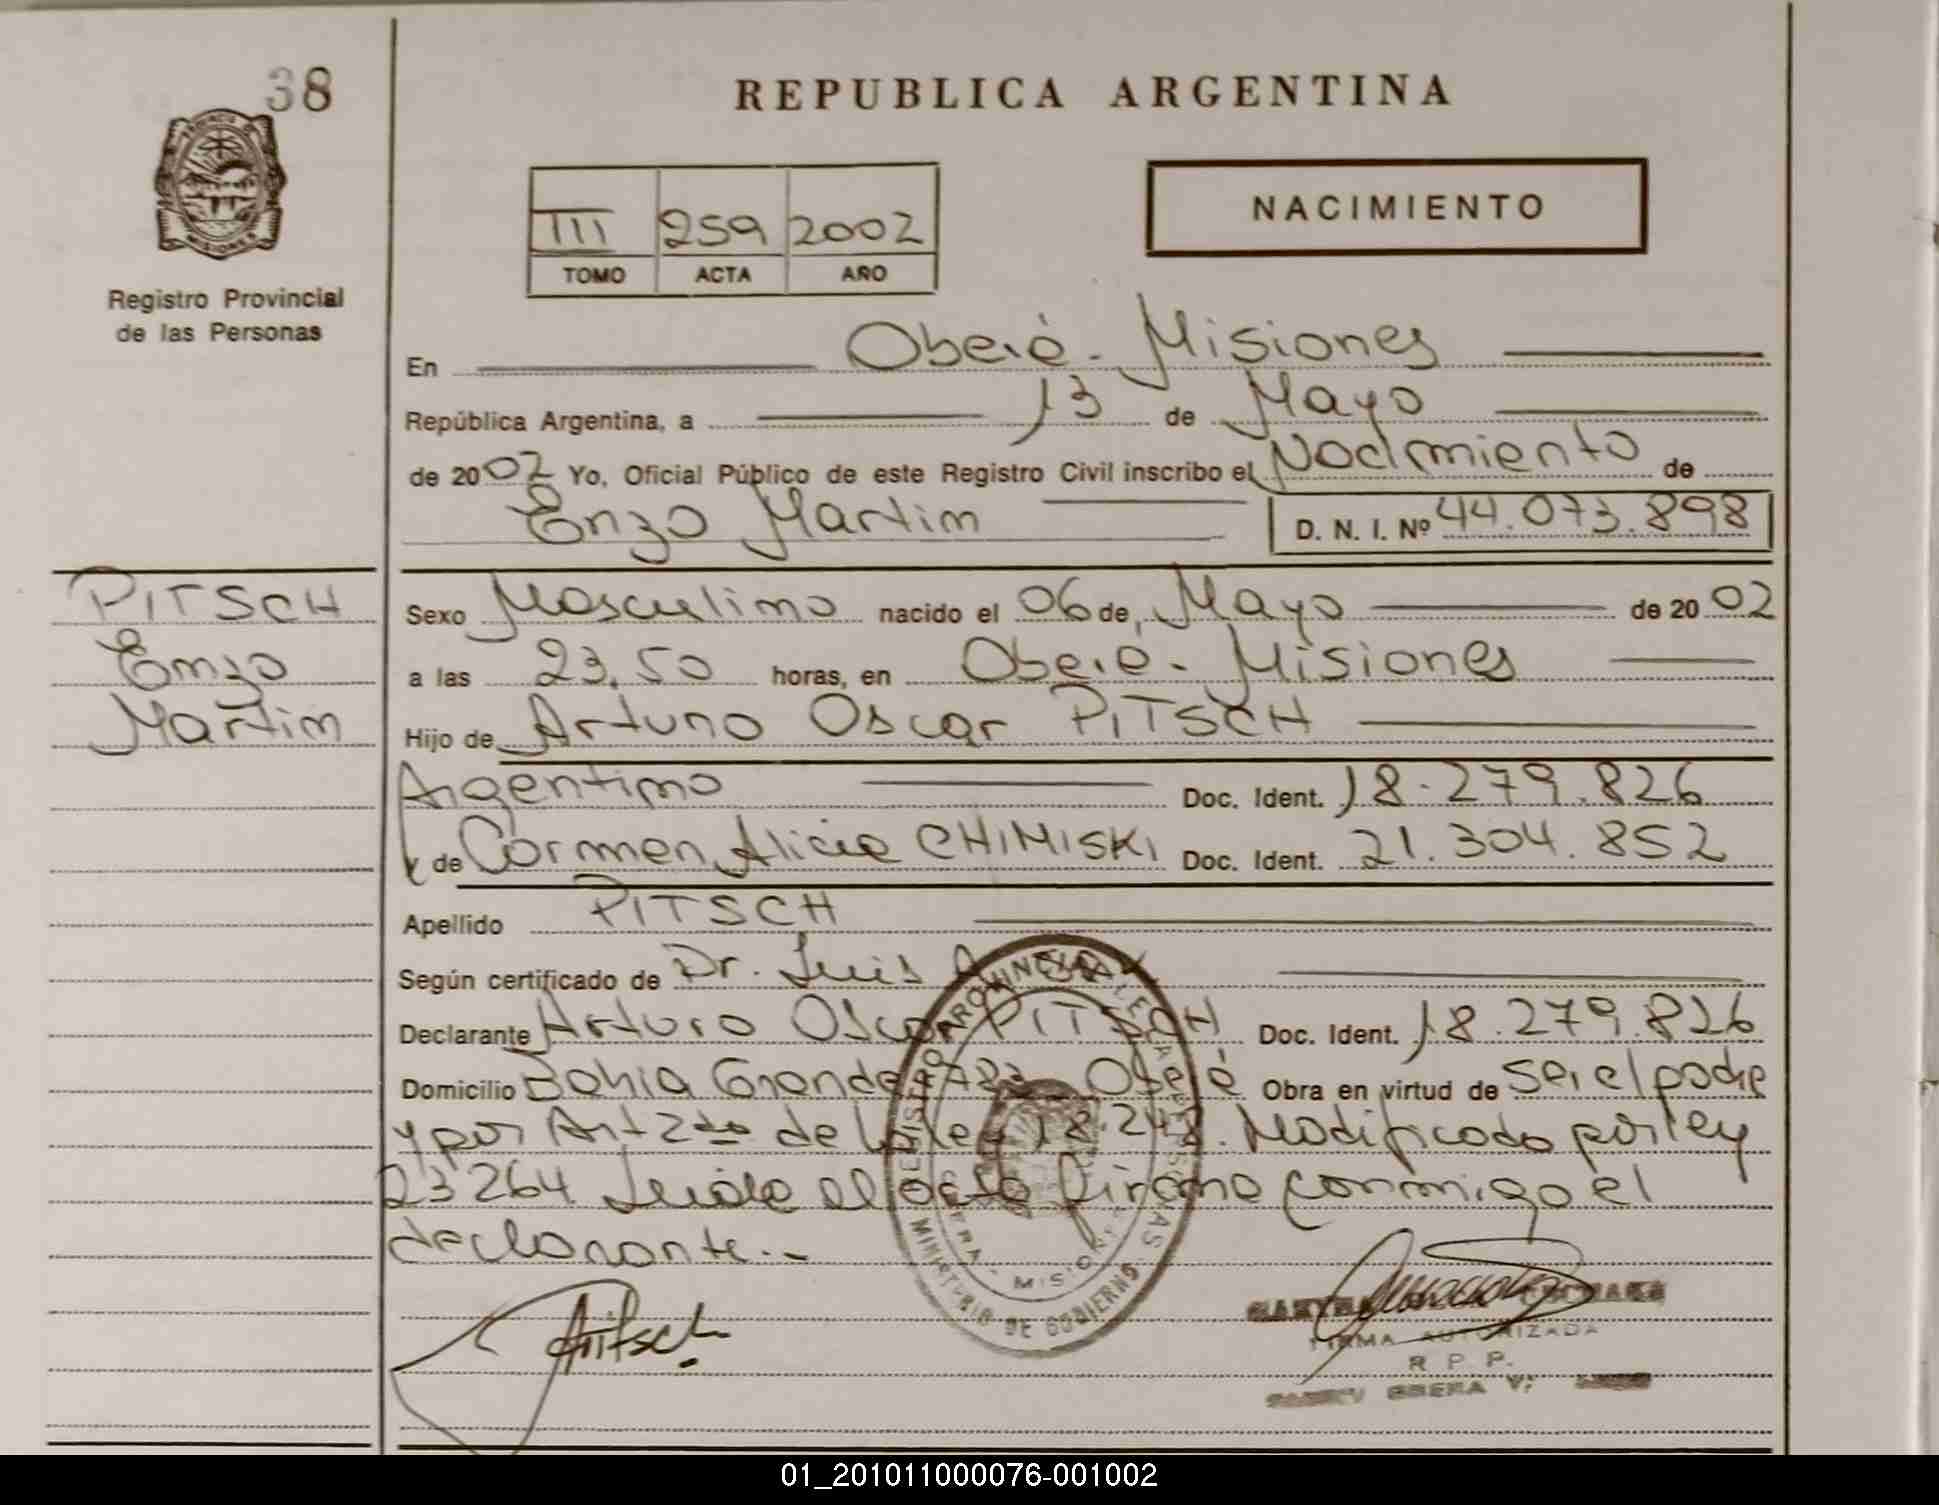 38
REPUBLICA ARGENTINA
III 259 2002
TOMO ACTA AÑO
NACIMIENTO
Registro Provincial
de las Personas
En Oberá - Misiones
República Argentina, a 13 de Mayo
de 2002 Yo, Oficial Público de este Registro Civil inscribo el Nacimiento de
Enzo Martin D. N. I. Nº 44.073.898
PITSCH
Enzo
Martin
Sexo Masculino nacido el 06 de Mayo de 2002
a las 23,50 horas, en Oberá - Misiones
Hijo de Arturo Oscar PITSCH
Argentino Doc. Ident. 18.279.826
y de Carmen Alicia CHIMISKI Doc. Ident. 21.304.852
Apellido PITSCH
Según certificado de Dr. Luis
Declarante Arturo Oscar PITSCH Doc. Ident. 18.279.826
Domicilio Bahia Grande Oberá Obra en virtud de ser el padre
y por Art 2do de la ley 18.248. Modificado por ley
23264. Leida el acta firma conmigo el
declarante.-
REGISTRO PROVINCIAL DE LAS PERSONAS
MINISTERIO DE GOBIERNO
MISIONES
APitsch
FIRMA AUTORIZADA
R P P.
OBERA
01_201011000076-001002